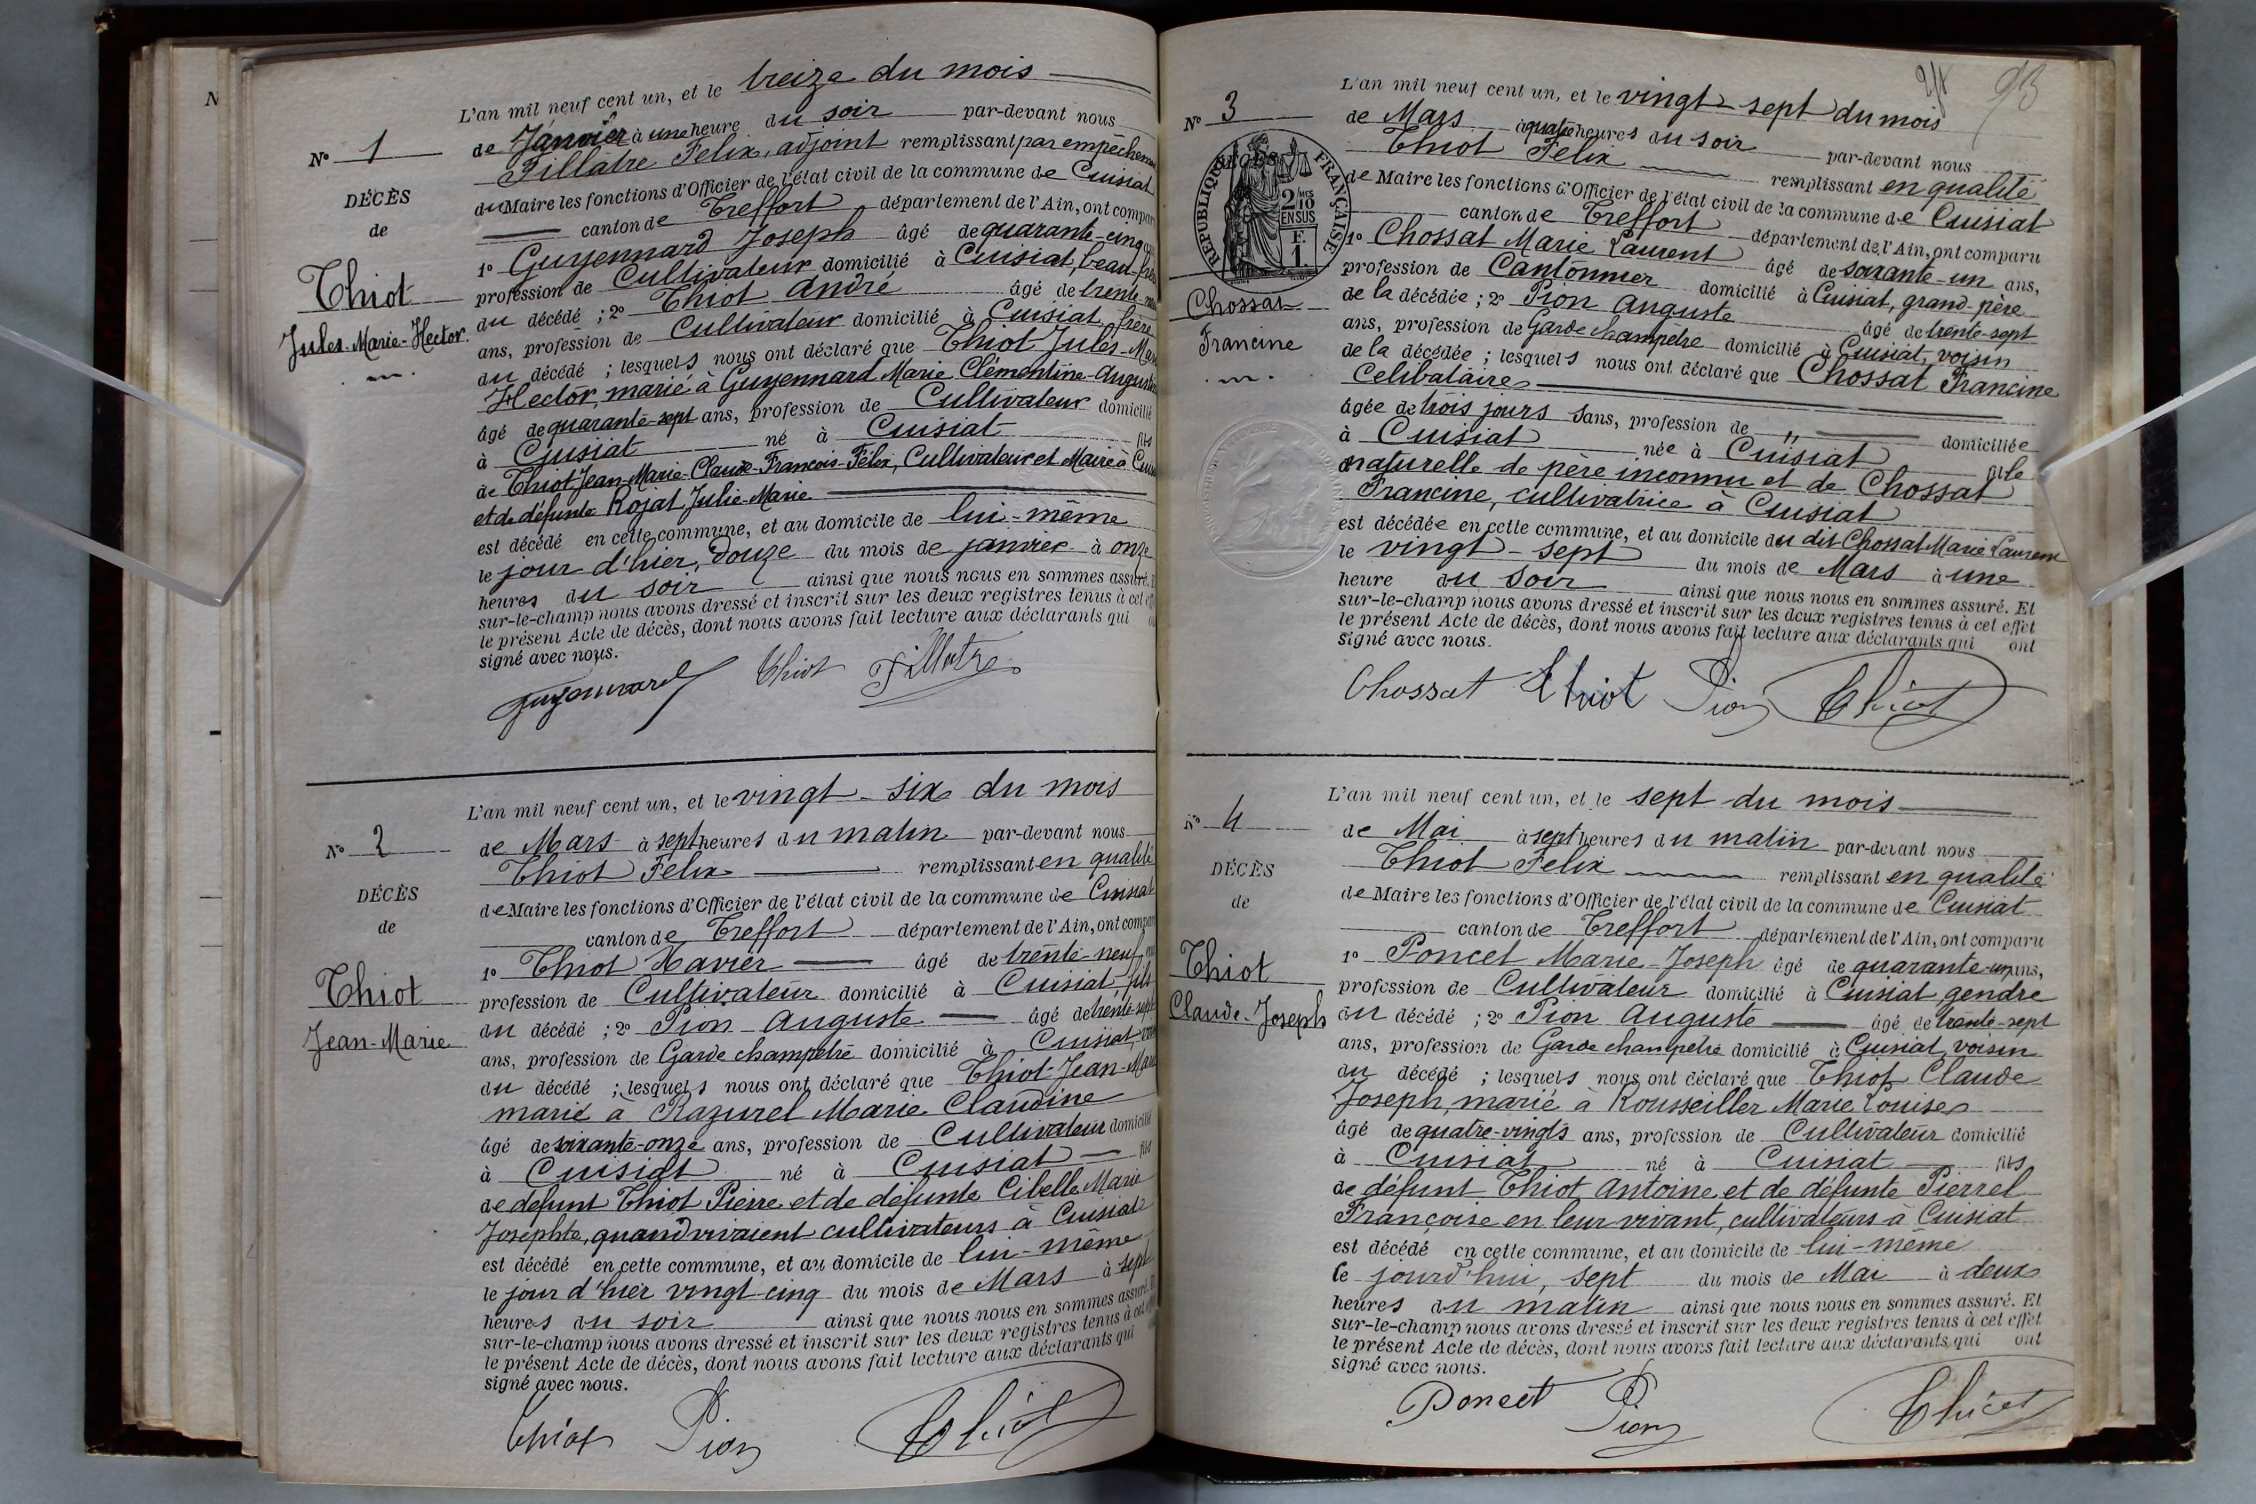 N
N° 1
DÉCÈS
de
Thiot
Jules-Marie-Hector.
L'an mil neuf cent un, et le treize du mois
de Janvier à une heure du soir par-devant nous
Fillatre Felix, adjoint remplissant par empêchem
du Maire les fonctions d'Officier de l'état civil de la commune de Cuisiat
canton de Treffort département de l'Ain, ont compar
1° Guyennard Joseph âgé de quarante-cinq
profession de Cultivateur domicilié à Cuisiat, beau-frère
du décédé ; 2° Thiot André âgé de trente
ans, profession de Cultivateur domicilié à Cuisiat, frère
du décédé ; lesquels nous ont déclaré que Thiot Jules-Mar
Hector, marié à Guyennard Marie Clémentine-Augusti
âgé de quarante-sept ans, profession de Cultivateur domicilié
à Cuisiat né à Cuisiat fils
de Thiot Jean-Marie-Claude-François-Félix, Cultivateur et Maire à Cuisi
et de défunte Rojat Julie-Marie
est décédé en cette commune, et au domicile de lui-même
le jour d'hier, douze du mois de janvier à onze
heures du soir ainsi que nous nous en sommes assuré. E
sur-le-champ nous avons dressé et inscrit sur les deux registres tenus à cet eff
le présent Acte de décès, dont nous avons fait lecture aux déclarants qui o
signé avec nous.
Guyennard Thiot Fillatre
N° 2
DÉCÈS
de
Thiot
Jean-Marie
L'an mil neuf cent un, et le vingt-six du mois
de Mars à sept heures du matin par-devant nous
Thiot Felix remplissant en qualité
de Maire les fonctions d'Officier de l'état civil de la commune de Cuisiat
canton de Treffort département de l'Ain, ont compar
1° Thiot Xavier âgé de trente-neuf
profession de Cultivateur domicilié à Cuisiat, fils
du décédé ; 2° Pion Auguste âgé de trente-sept
ans, profession de Garde champêtre domicilié à Cuisiat, voi
du décédé ; lesquels nous ont déclaré que Thiot-Jean-Marie
marié à Razurel Marie Claudine
âgé de soixante-onze ans, profession de Cultivateur domicilié
à Cuisiat né à Cuisiat fils
de défunt Thiot Pierre et de défunte Cibelle Marie
Josephte, quand vivaient cultivateurs à Cuisiat
est décédé en cette commune, et au domicile de lui-même
le jour d'hier vingt-cinq du mois de Mars à sept
heures du soir ainsi que nous nous en sommes assuré. E
sur-le-champ nous avons dressé et inscrit sur les deux registres tenus à cet eff
le présent Acte de décès, dont nous avons fait lecture aux déclarants qui
signé avec nous.
Thiot Pion Thiot
93
N° 3
RÉPUBLIQUE FRANÇAISE
2/10
EN SUS
F.
1.
Chossat
Francine
L'an mil neuf cent un, et le vingt-sept du mois
de Mars à quatre heures du soir par-devant nous
Thiot Felix remplissant en qualité
de Maire les fonctions d'Officier de l'état civil de la commune de Cuisiat
canton de Treffort département de l'Ain, ont comparu
1° Chossat Marie Laurent âgé de soixante-un ans,
profession de Cantonnier domicilié à Cuisiat, grand-père
de la décédée ; 2° Pion Auguste âgé de trente-sept
ans, profession de Garde champêtre domicilié à Cuisiat, voisin
de la décédée ; lesquels nous ont déclaré que Chossat Francine
Célibataire
âgée de trois jours sans, profession de " domiciliée
à Cuisiat née à Cuisiat fille
naturelle de père inconnu et de Chossat
Francine, cultivatrice à Cuisiat
est décédée en cette commune, et au domicile du dit Chossat Marie Laurent
le vingt-sept du mois de Mars à une
heure du soir ainsi que nous nous en sommes assuré. Et
sur-le-champ nous avons dressé et inscrit sur les deux registres tenus à cet effet
le présent Acte de décès, dont nous avons fait lecture aux déclarants qui ont
signé avec nous.
Chossat Thiot Pion Thiot
N° 4
DÉCÈS
de
Thiot
Claude-Joseph
L'an mil neuf cent un, et le sept du mois
de Mai à sept heures du matin par-devant nous
Thiot Felix remplissant en qualité
de Maire les fonctions d'Officier de l'état civil de la commune de Cuisiat
canton de Treffort département de l'Ain, ont comparu
1° Poncet Marie-Joseph âgé de quarante-un ans,
profession de Cultivateur domicilié à Cuisiat, gendre
du décédé ; 2° Pion Auguste âgé de trente-sept
ans, profession de Garde champêtre domicilié à Cuisiat, voisin
du décédé ; lesquels nous ont déclaré que Thiot Claude
Joseph, marié à Rousseiller Marie Louise
âgé de quatre-vingts ans, profession de Cultivateur domicilié
à Cuisiat né à Cuisiat fils
de défunt Thiot Antoine et de défunte Pierrel
Françoise en leur vivant, cultivateurs à Cuisiat
est décédé en cette commune, et au domicile de lui-même
le jourd'hui, sept du mois de Mai à deux
heures du matin ainsi que nous nous en sommes assuré. Et
sur-le-champ nous avons dressé et inscrit sur les deux registres tenus à cet effet
le présent Acte de décès, dont nous avons fait lecture aux déclarants qui ont
signé avec nous.
Poncet Pion Thiot